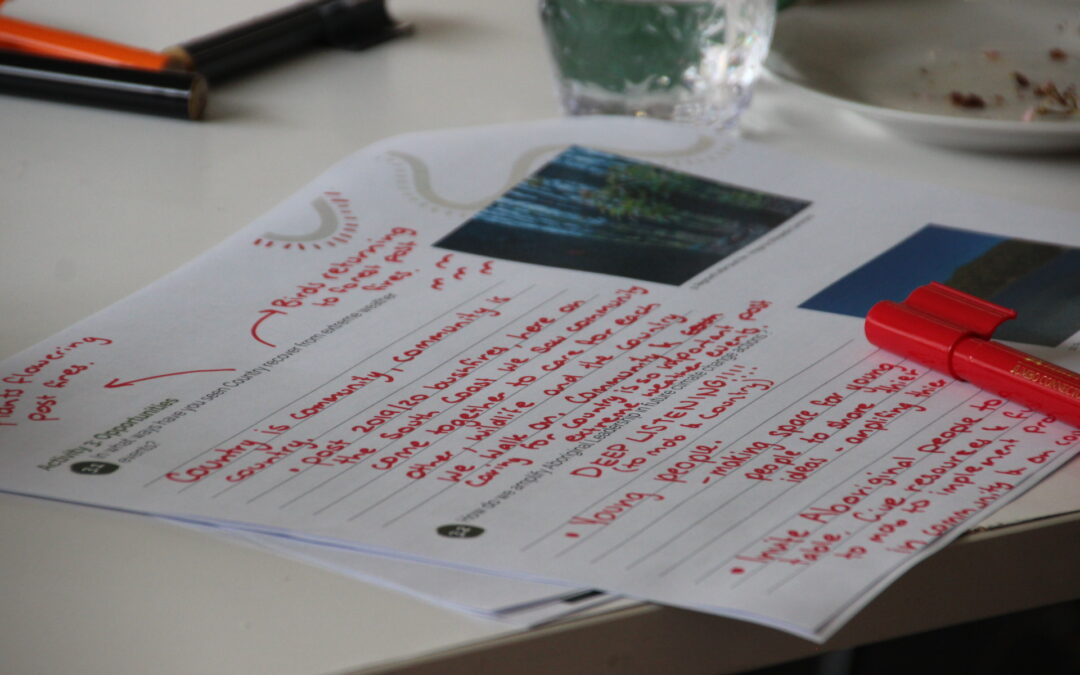 Birds returning
to forest post
fires.
plants flowering
post fires.
Activity 3: Opportunities
3.1 In what ways have you seen Country recover from extreme weather
events?
Country is community, community is
country.
• Post 2019/20 bushfires here on
the South Coast we saw community
come together to care for each
other / wildlife and the country
we walk on. Community is
caring for country is so important post
extreme weather events.
3.2 How do we amplify Aboriginal leadership in future climate change actions?
DEEP LISTENING!!!
(to mob & country)!!
• Young people.
- making space for young
people to share their
ideas - amplifying their
• Invite Aboriginal people to
table. Give resources &
to mob to implement
in community & on